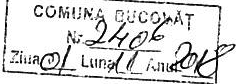 COMUNA BUCOVĂȚ
Nr. 2406
Ziua 01 Luna 11 Anul 2018